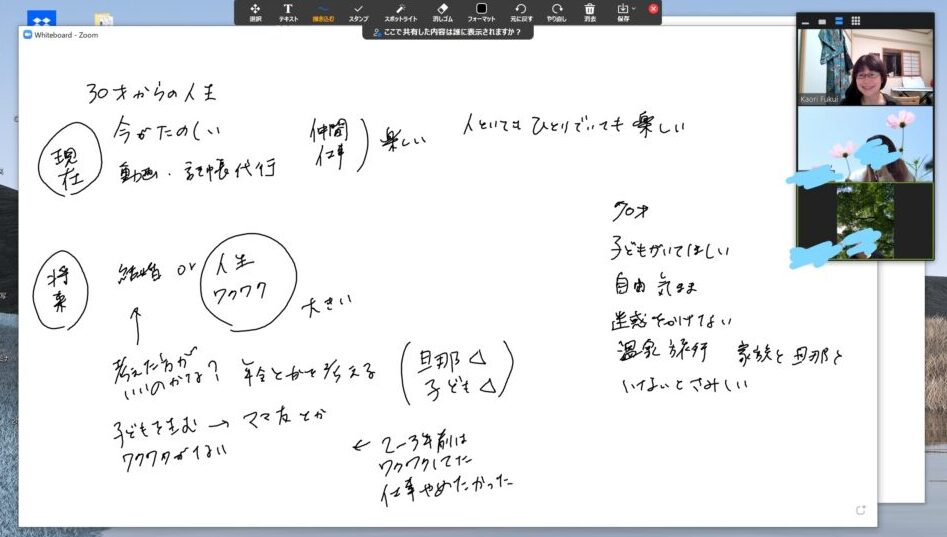 選択 テキスト 描き込む スタンプ スポットライト 消しゴム フォーマット 元に戻す やり直し 消去 保存
ここで共有した内容は誰に表示されますか？
Whiteboard - Zoom
Kaori Fukui
30才からの人生
現在
今がたのしい
動画・記帳代行
仲間
仕事
楽しい
人といても ひとりでいても 楽しい
将来
結婚 or
人生
ワクワク
大きい
考えた方が
いいのかな？
年令とかを考える
旦那 △
子ども △
子どもを産む → ママ友とか
ワクワクがない
← 2～3年前は
ワクワクしてた
仕事やめたかった
70才
子どもがいてほしい
自由 気まま
迷惑をかけてない
温泉 旅行 家族と旦那と
いないとさみしい